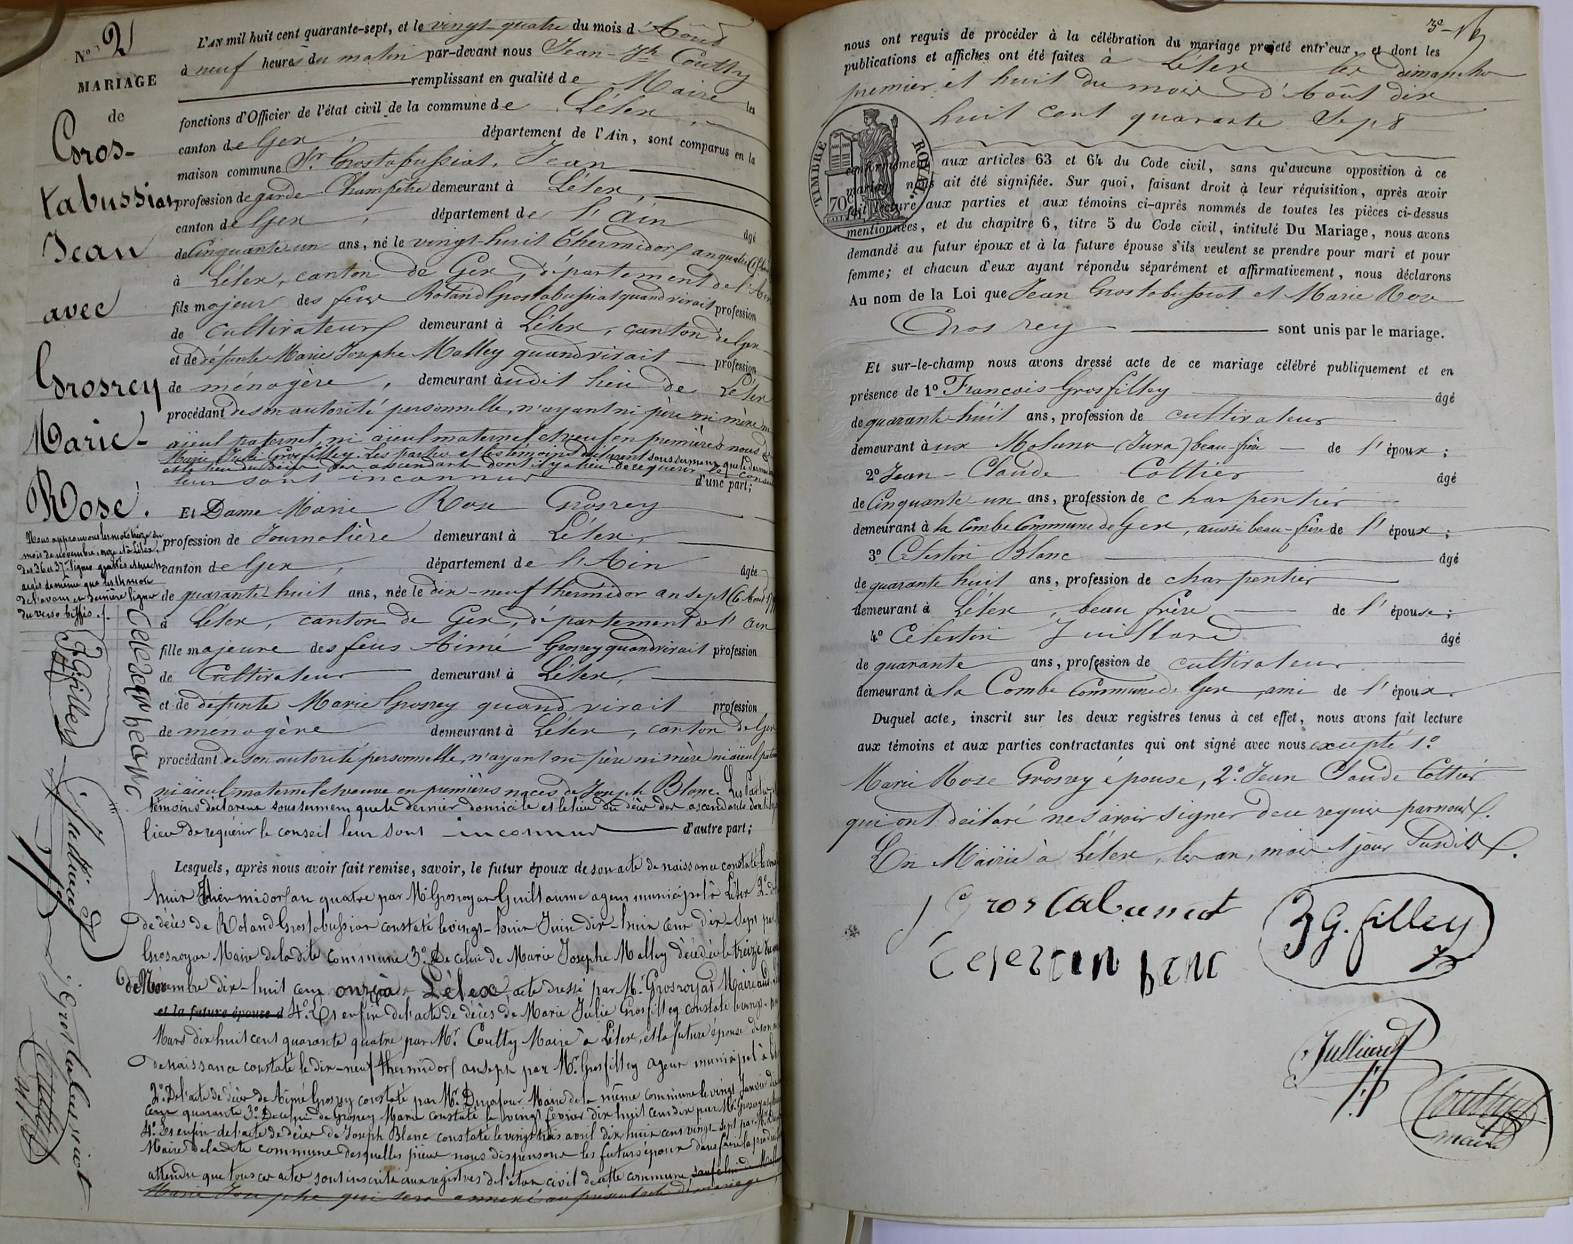 N° 2
MARIAGE
de
Gros-
tabussiat
Jean
avec
Grosrey
Marie-
Rose.
L'AN mil huit cent quarante-sept, et le vingt-quatre du mois d'Août
à neuf heures du matin par-devant nous Jean-Jh Coutty
remplissant en qualité de Maire les
fonctions d'Officier de l'état civil de la commune de Lélex,
canton de Gex département de l'Ain, sont comparus en la
maison commune Sr. Grostabussiat, Jean
profession de garde Champêtre demeurant à Lélex,
canton de Gex, département de l'Ain âgé
de Cinquante-un ans, né le vingt-huit Thermidor an quatre
à Lélex, canton de Gex, département de l'Ain
fils majeur des feux Roland Grostabussiat quand vivait profession
de Cultivateur demeurant à Lélex, canton de Gex
et de défunte Marie Josephe Malley quand vivait profession
de ménagère, demeurant audit lieu de Lélex
procédant de son autorité personnelle, n'ayant ni père ni mère ni
aïeul paternel ni aïeul maternel et veuf en premières noces de
Marie Julie Grosfilley. Les parties et les témoins déclarent sous serment que le dernier
et le lieu du décès des ascendants dont il y a lieu de requérir le conseil
leur sont inconnus d'une part;
Et Dame Marie Rose Grosrey
profession de Journalière demeurant à Lélex,
canton de Gex, département de l'Ain âgée
de quarante-huit ans, née le dix-neuf thermidor an sept
à Lélex, canton de Gex, département de l'Ain
fille majeure des feus Aimé Grosrey quand vivait profession
de Cultivateur demeurant à Lélex,
et de défunte Marie Grosrey quand vivait profession
de menagère demeurant à Lélex, canton de Gex
procédant de son autorité personnelle, n'ayant ni père ni mère ni aïeul
ni aïeul maternel et veuve en premières noces de Joseph Blanc.
témoins déclarent sous serment que le dernier domicile et le lieu du décès des ascendants dont
lieu de requérir le conseil leur sont inconnus d'autre part;
Lesquels, après nous avoir fait remise, savoir, le futur époux de son acte de naissance constaté le
huit Thermidor an quatre par Mr Grosroyat Guillaume agent municipal à Lélex 2°
de décès de Roland Grostabussiat constaté le vingt-huit Juin dix-huit cent dix-sept par
Grosroyat Maire de ladite commune 3° De celui de Marie Josephe Malley décédée le treize
de Novembre dix-huit cent onze à Lélex, acte dressé par Mr Grosroyat Maire
et la future épouse d 4° Et enfin de l'acte de décès de Marie Julie Grosfilley constaté le vingt
Mars dix huit cent quarante quatre par Mr Coutty Maire à Lélex, et la future épouse de son
de naissance constaté le dix-neuf thermidor an sept par Mr Grosfilley agent municipal à
2° De l'acte de décès de Aimé Grosrey constaté par Mr Maire de la même commune le vingt Janvier
cent quarante 3° De celui de Grosrey Marie constaté le vingt février dix huit cent
4° Et enfin de l'acte de décès de Joseph Blanc constaté le vingt trois avril dix huit cent vingt sept par
Maire de ladite commune desquelles pièces nous dispensons les futurs époux
attendu que tous ces actes sont inscrits aux registres de l'état civil de cette commune,
Marie Josephe qui sera annexé au présent acte de mariage
nous ont requis de procéder à la célébration du mariage projeté entr'eux, et dont les
publications et affiches ont été faites à Lélex les dimanche
premier et huit du mois d'Août dix
huit cent quarante Sept
TIMBRE ROYAL
70c
conformément aux articles 63 et 64 du Code civil, sans qu'aucune opposition à ce
mariage nous ait été signifiée. Sur quoi, faisant droit à leur réquisition, après avoir
fait lecture aux parties et aux témoins ci-après nommés de toutes les pièces ci-dessus
mentionnées, et du chapitre 6, titre 5 du Code civil, intitulé Du Mariage, nous avons
demandé au futur époux et à la future épouse s'ils veulent se prendre pour mari et pour
femme; et chacun d'eux ayant répondu séparément et affirmativement, nous déclarons
Au nom de la Loi que Jean Grostabussiat et Marie Rose
Grosrey sont unis par le mariage.
Et sur-le-champ nous avons dressé acte de ce mariage célébré publiquement et en
présence de 1° François Grosfilley âgé
de quarante-huit ans, profession de cultivateur
demeurant aux Molunes (Jura) beau-frère de l'époux;
2° Jean-Claude Cottier âgé
de Cinquante-un ans, profession de charpentier
demeurant à la Combe Commune de Gex, aussi beau-frère de l'époux;
3° Célestin Blanc âgé
de quarante huit ans, profession de charpentier
demeurant à Lélex, beau frère, de l'épouse;
4° Célestin Juilland âgé
de quarante ans, profession de cultivateur
demeurant à la Combe Commune de Gex, ami de l'époux.
Duquel acte, inscrit sur les deux registres tenus à cet effet, nous avons fait lecture
aux témoins et aux parties contractantes qui ont signé avec nous excepté 1°
Marie Rose Grosrey épouse, 2° Jean Claude Cottier
qui ont déclaré ne savoir signer de ce requis par nous.
En Mairie à Lélex, les an, mois et jour susdits.